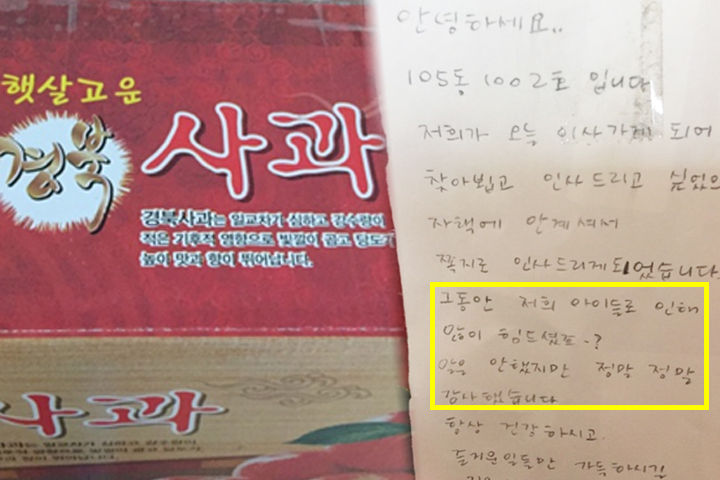 햇살고운
경북
사과
경북사과는 일교차가 심하고 강수량이
적은 기후적 영향으로 빛깔이 곱고 당도가
높아 맛과 향이 뛰어납니다.
사과
안녕하세요..
105동 1002호 입니다
저희가 오늘 이사가게 되어
찾아뵙고 인사드리고 싶었으
자택에 안계셔서
쪽지로 인사드리게되었습니다
그동안 저희 아이들로 인해
많이 힘드셨죠-?
말은 안했지만 정말 정말
감사했습니다
항상 건강하시고.
즐거운일들만 가득하시길